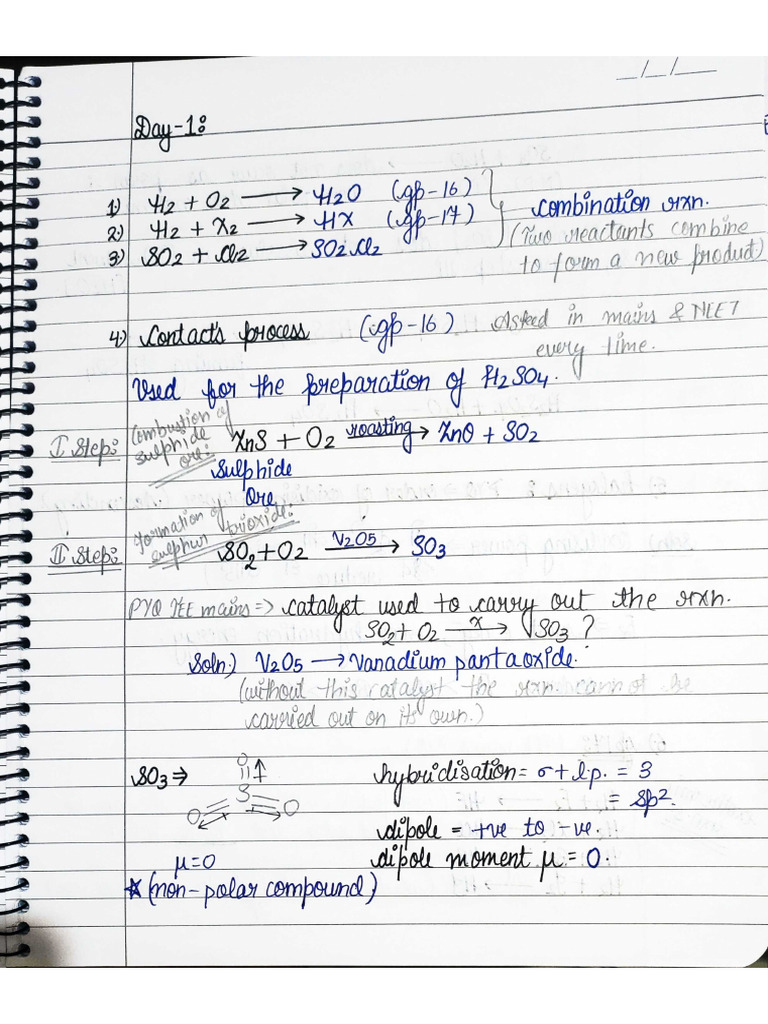 _/_/__
Day-1:
1) H2 + O2 ⟶ H2O (gp-16)
2) H2 + X2 ⟶ HX (gp-17)
3) SO2 + Cl2 ⟶ SO2Cl2
Combination rxn.
(Two reactants combine
to form a new product)
4) Contact's process (gp-16) Asked in mains & NEET
every time.
Used for the preparation of H2SO4.
I Step: Combustion of
sulphide
ore:
ZnS + O2 roasting→ ZnO + SO2
Sulphide
Ore
II Step: Formation of
sulphur trioxide:
SO2 + O2 V2O5→ SO3
PYQ JEE mains => catalyst used to carry out the rxn.
SO2 + O2 x→ SO3 ?
Soln:) V2O5 → Vanadium pantaoxide.
(without this catalyst the rxn. cannot be
carried out on its own.)
SO3 ⇒
O
S
O O
μ = 0
★ (non-polar compound)
hybridisation = σ + l.p. = 3
= sp2.
dipole = +ve to -ve.
dipole moment μ = 0.